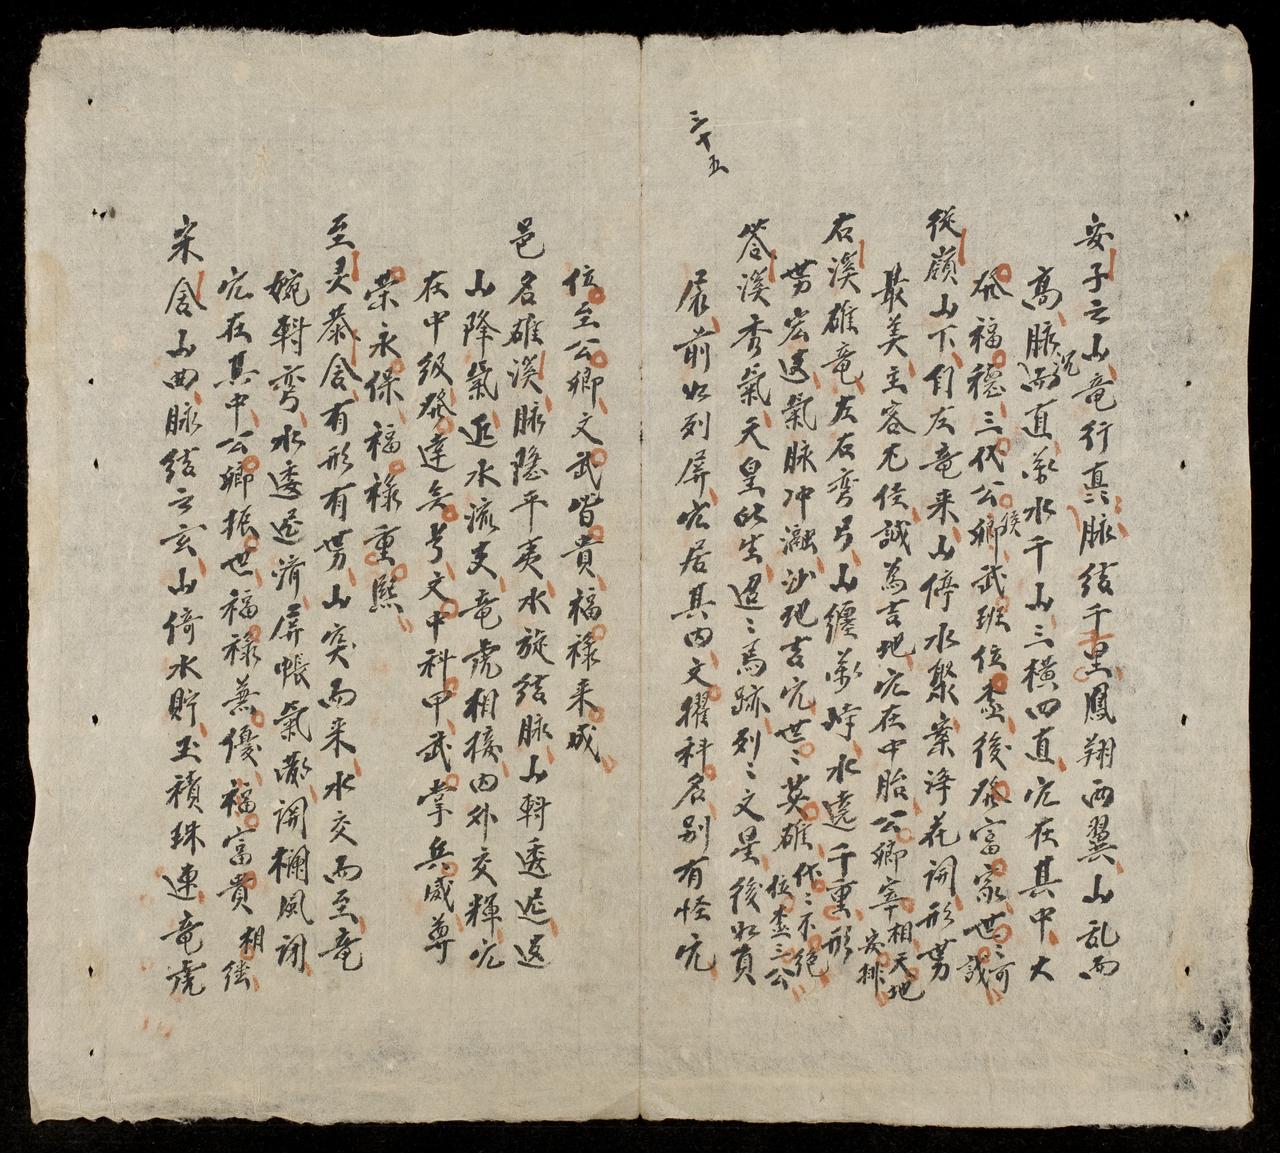 安子云山竜行真脉結千里鳳翔两翼山乱而
高脉况而直萬水千山三横四直穴在其中大
発福德三代公侯卿武班位盃後発富家世〻可誠
從嶺山下到左竜来山停水聚案净花開形势
最美主客尤佳誠為吉地穴在中胎公卿宰相天地安排
右溪雄竜左右弯弓山纏萬 水遶千重形
势宏 氣脉冲瀜沙地吉穴世〻英雄代〻不絕位盃三公
答溪秀氣天皇 生迢〻馬跡列〻文星後如負
扆前如列屏穴居其内文擢科名别有怪穴
三十五
位至公卿文武皆貴福禄来成
邑名雄溪脉隐平夷水旋結脉山斡逶迤
山降氣近水流支竜虎相接内外交輝穴
在中级発達 号文中科甲武掌兵威尊
荣永保福禄重熙
至灵 舍有形有势山突而来水交而至竜
婉斡弯水逶迤濟屏帳氣 開欄風闭
穴在其中公卿振世福禄兼優福富貴相継
宋舍山曲脉結之玄山倚水貯玉積珠連竜虎